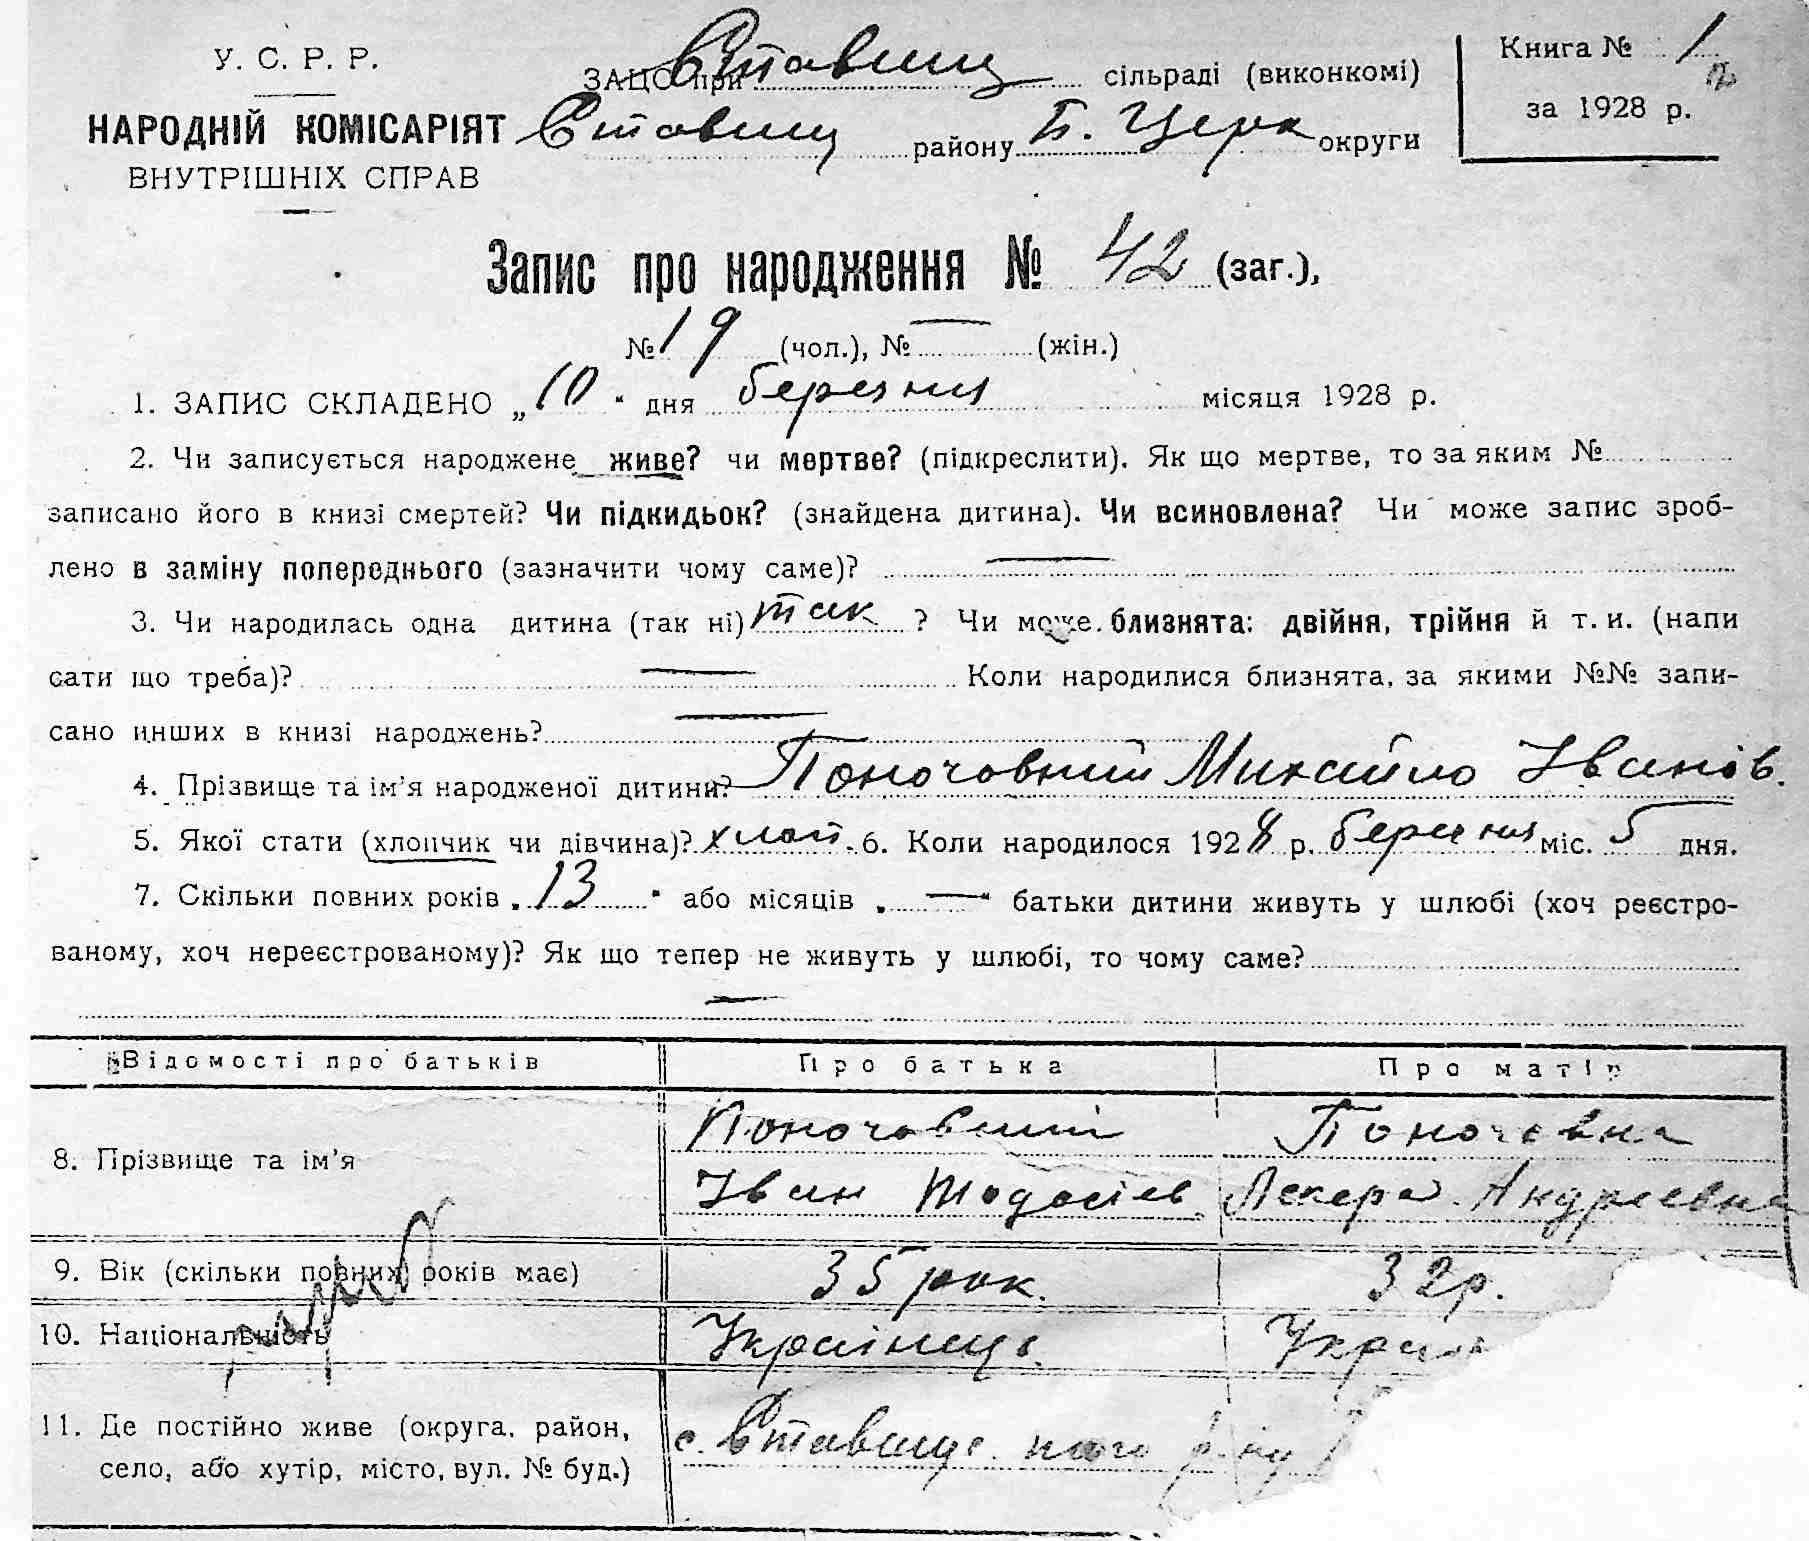 У. С. Р. Р.
НАРОДНІЙ КОМІСАРІЯТ
ВНУТРІШНІХ СПРАВ
ЗАЦС при Ставищ сільраді (виконкомі)
Ставищ району Б. Церк округи
Книга № 1
за 1928 р.
Запис про народження № 42 (заг.),
№ 19 (чол.), № — (жін.)
1. ЗАПИС СКЛАДЕНО „10“ дня березня місяця 1928 р.
2. Чи записується народжене живе? чи мертве? (підкреслити). Як що мертве, то за яким №
записано його в книзі смертей? Чи підкидьок? (знайдена дитина). Чи всиновлена? Чи може запис зроб-
лено в заміну попереднього (зазначити чому саме)? —
3. Чи народилась одна дитина (так ні) так ? Чи може близнята: двійня, трійня й т. и. (напи
сати що треба)? — Коли народилися близнята, за якими №№ запи-
сано инших в книзі народжень? —
4. Прізвище та ім'я народженої дитини? Поночовний Михайло Іванов.
5. Якої стати (хлопчик чи дівчина)? хлоп. 6. Коли народилося 1928 р. березня міс. 5 дня.
7. Скільки повних років „13“ або місяців „—“ батьки дитини живуть у шлюбі (хоч реєстро-
ваному, хоч нереєстрованому)? Як що тепер не живуть у шлюбі, то чому саме?
—
Відомості про батьків Про батька Про матір
8. Прізвище та ім'я
Поночовний Поночовна
Іван Тодосіев Лекера Андреевна
9. Вік (скільки повних років має) 35 рок. 32 р.
10. Національність Українець Украї
11. Де постійно живе (округа, район,
село, або хутір, місто, вул. № буд.)
с. Ставище